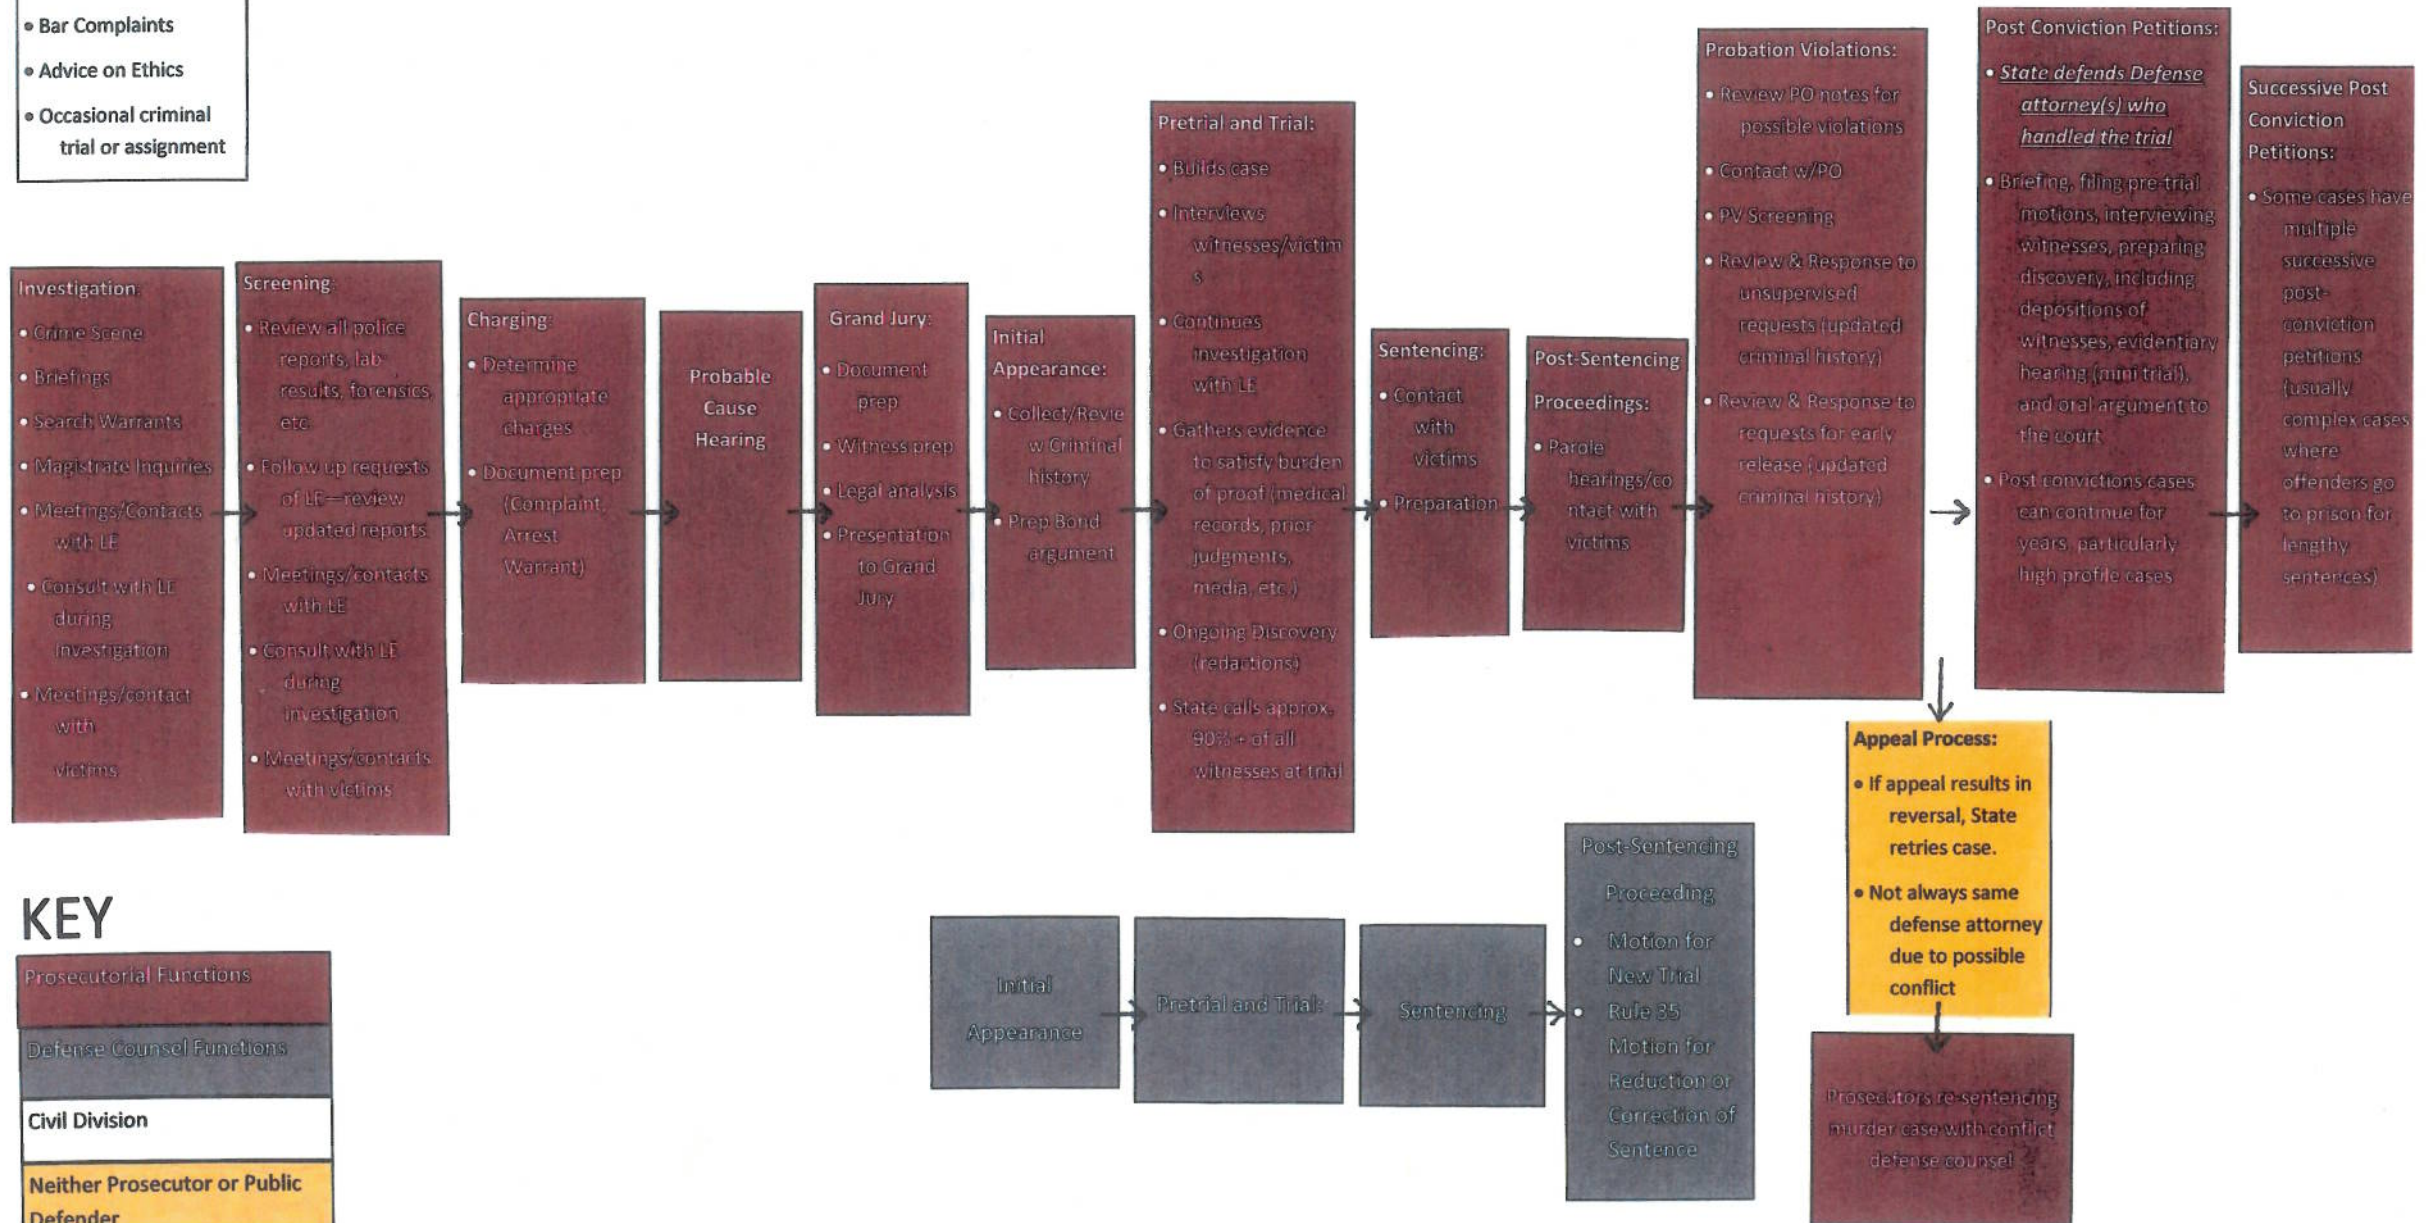 • Bar Complaints
• Advice on Ethics
• Occasional criminal
trial or assignment
Investigation:
• Crime Scene
• Briefings
• Search Warrants
• Magistrate Inquiries
• Meetings/Contacts
with LE
• Consult with LE
during
investigation
• Meetings/contact
with
victims
Screening:
• Review all police
reports, lab
results, forensics,
etc
• Follow up requests
of LE—review
updated reports
• Meetings/contacts
with LE
• Consult with LE
during
investigation
• Meetings/contacts
with victims
Charging:
• Determine
appropriate
charges
• Document prep
(Complaint,
Arrest
Warrant)
Probable
Cause
Hearing
Grand Jury:
• Document
prep
• Witness prep
• Legal analysis
• Presentation
to Grand
Jury
Initial
Appearance:
• Collect/Revie
w Criminal
history
• Prep Bond
argument
Pretrial and Trial:
• Builds case
• Interviews
witnesses/victim
s
• Continues
investigation
with LE
• Gathers evidence
to satisfy burden
of proof (medical
records, prior
judgments,
media, etc.)
• Ongoing Discovery
(redactions)
• State calls approx.
90% + of all
witnesses at trial
Sentencing:
• Contact
with
victims
• Preparation
Post-Sentencing
Proceedings:
• Parole
hearings/co
ntact with
victims
Probation Violations:
• Review PO notes for
possible violations
• Contact w/PO
• PV Screening
• Review & Response to
unsupervised
requests (updated
criminal history)
• Review & Response to
requests for early
release (updated
criminal history)
Post Conviction Petitions:
• State defends Defense
attorney(s) who
handled the trial
• Briefing, filing pre-trial
motions, interviewing
witnesses, preparing
discovery, including
depositions of
witnesses, evidentiary
hearing (mini trial),
and oral argument to
the court
• Post convictions cases
can continue for
years, particularly
high profile cases
Successive Post
Conviction
Petitions:
• Some cases have
multiple
successive
post-
conviction
petitions
(usually
complex cases
where
offenders go
to prison for
lengthy
sentences)
Appeal Process:
• If appeal results in
reversal, State
retries case.
• Not always same
defense attorney
due to possible
conflict
Prosecutors re-sentencing
murder case with conflict
defense counsel
Initial
Appearance
Pretrial and Trial:
Sentencing
Post-Sentencing
Proceeding
• Motion for
New Trial
• Rule 35
Motion for
Reduction or
Correction of
Sentence
KEY
Prosecutorial Functions
Defense Counsel Functions
Civil Division
Neither Prosecutor or Public
Defender